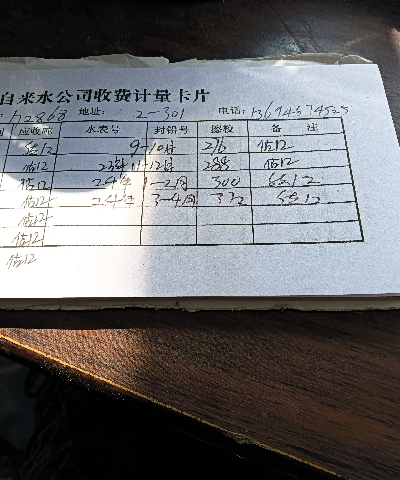 自来水公司收费计量卡片
112868 地址: 2-301 电话: 13674574525
应收吨 水表号 封铅号 底数 备 注
估12 9-10月 276 估12
估12 23年11-12月 288 估12
估12 24年1-2月 300 估12
估12 24年3-4月 312 估12
估12
估12
估12